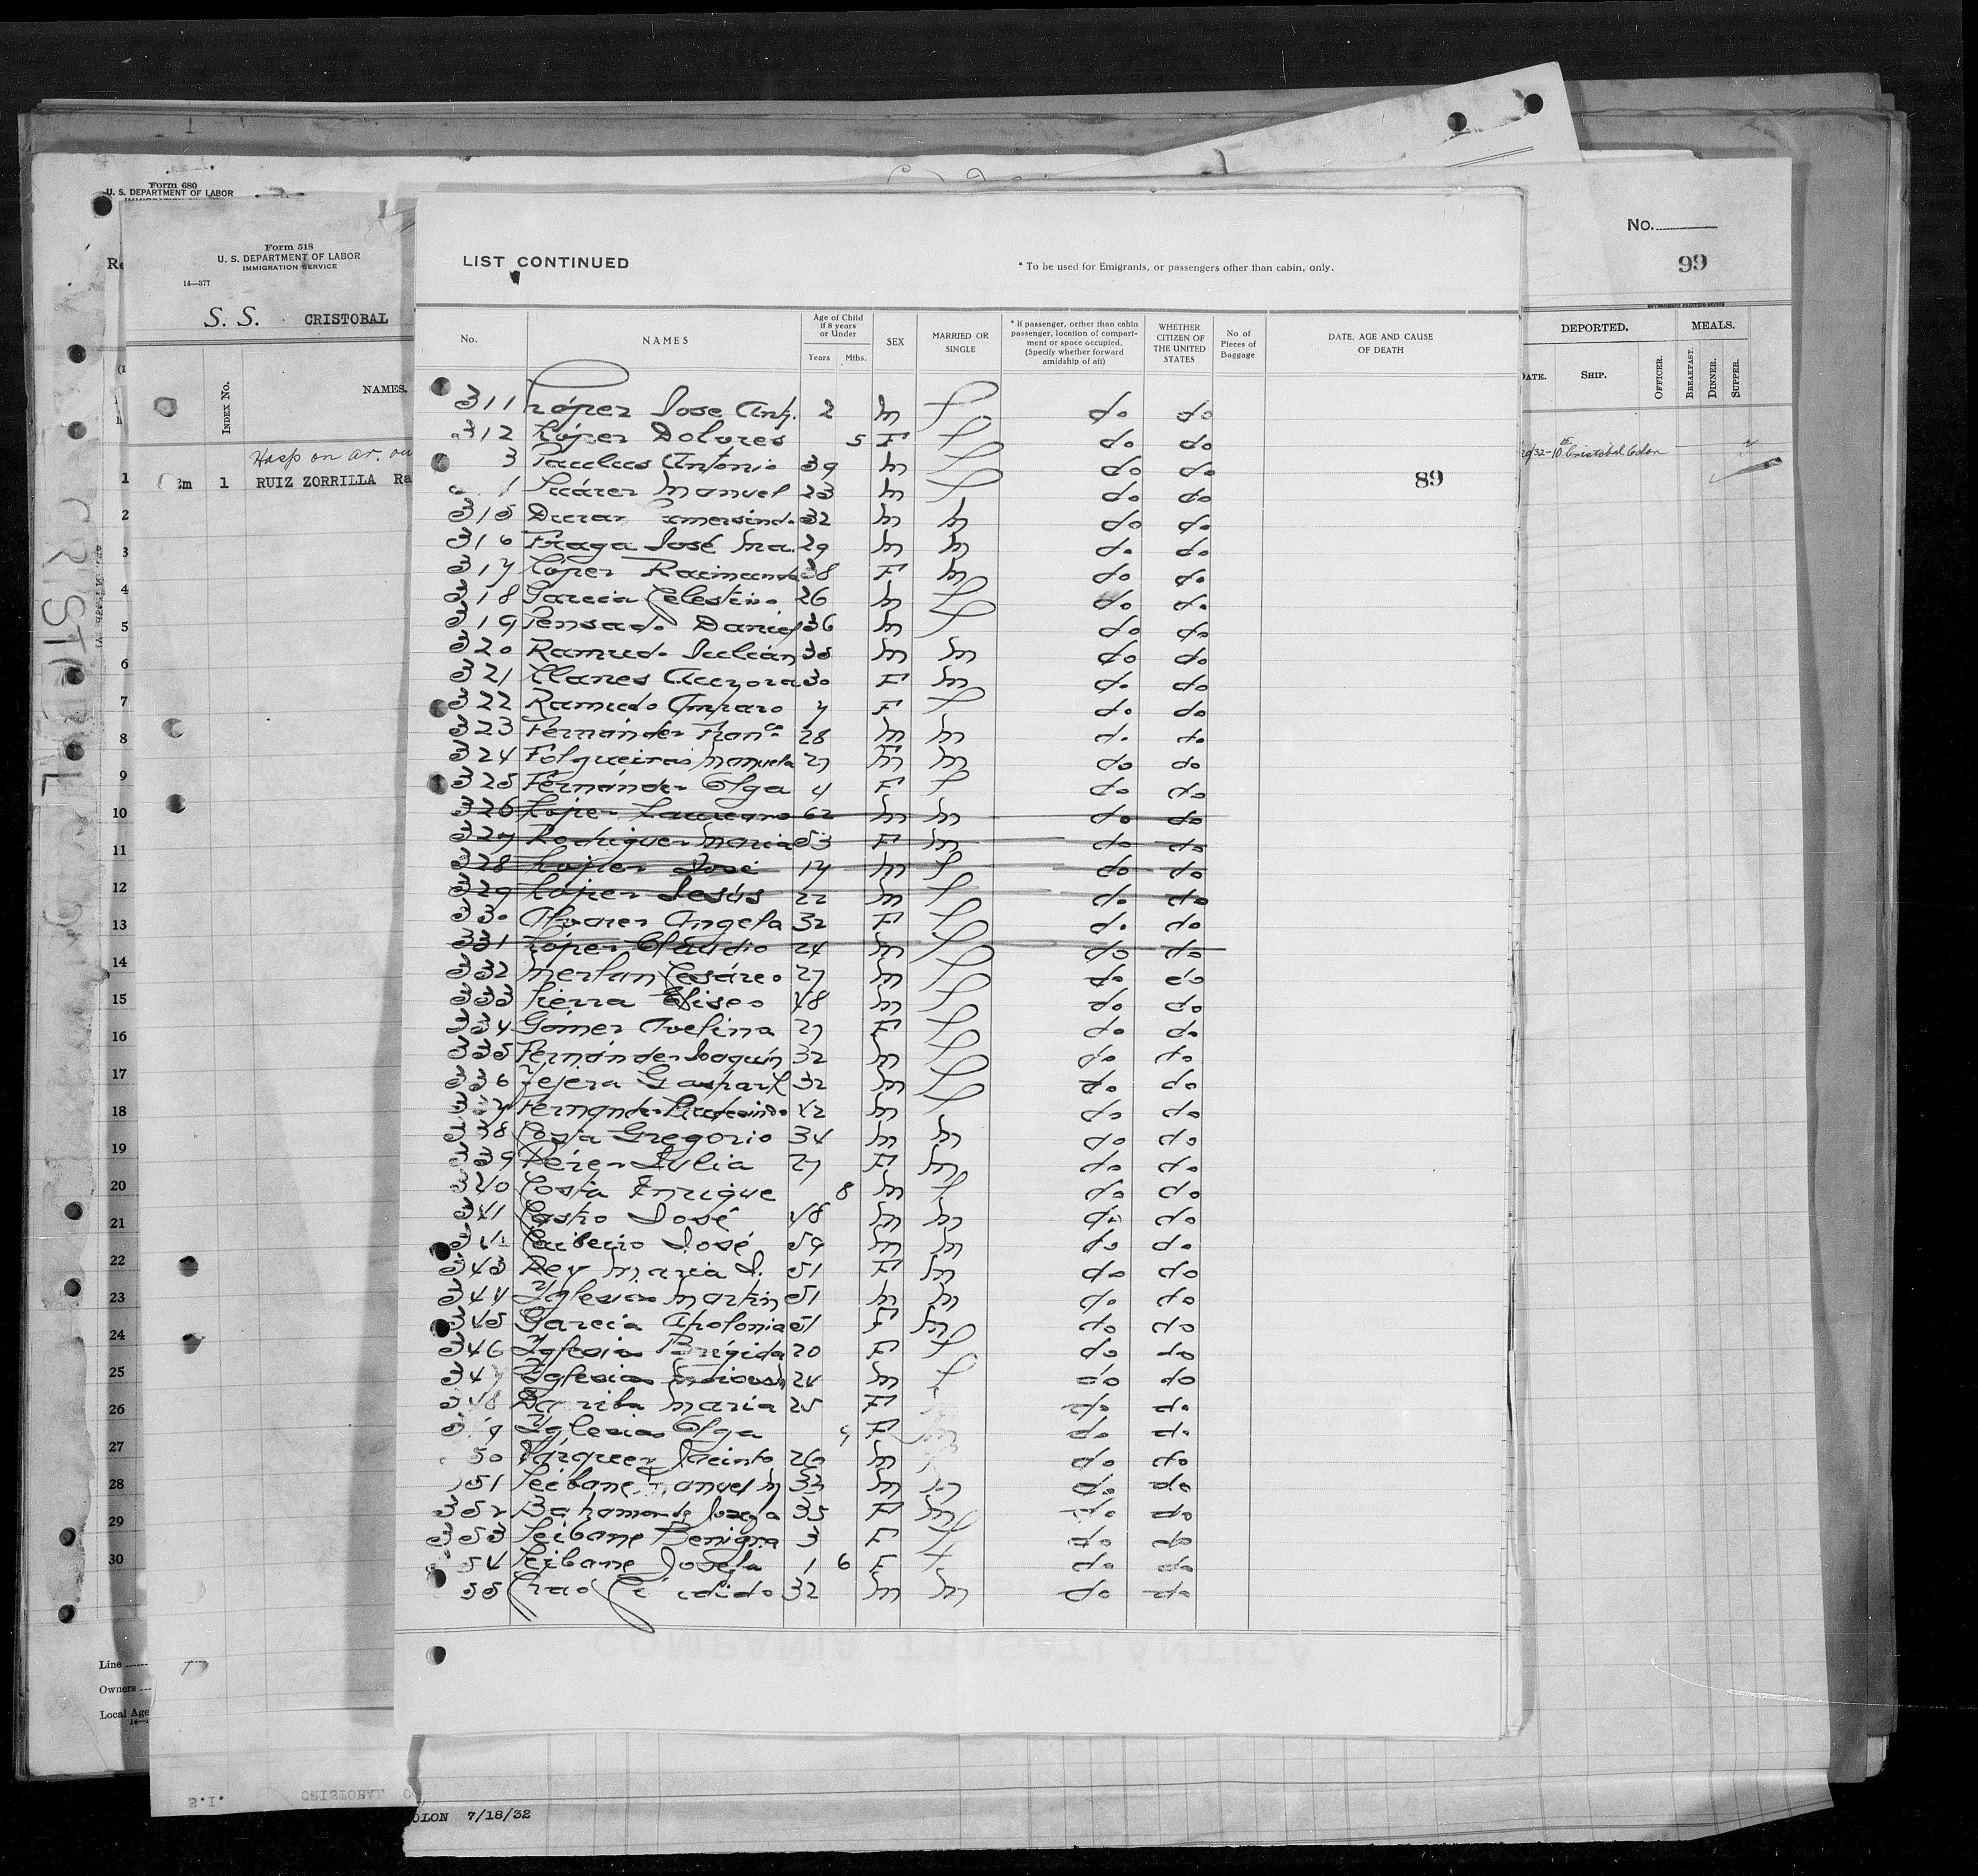 Form 680
U. S. DEPARTMENT OF LABOR
Form 518
U. S. DEPARTMENT OF LABOR
IMMIGRATION SERVICE
14—377
S. S. CRISTOBAL
INDEX No.
NAMES.
Hosp on ar.
1 2m 1 RUIZ ZORRILLA Ra
2
3
4
5
6
7
8
9
10
11
12
13
14
15
16
17
18
19
20
21
22
23
24
25
26
27
28
29
30
Line
Owners
Local Age
LIST CONTINUED
* To be used for Emigrants, or passengers other than cabin, only.
No.
NAMES
Age of Child if 8 years or Under
Years Mths.
SEX
MARRIED OR SINGLE
* If passenger, orther than cabin passenger, location of compartment or space occupied. (Specify whether forward amidship of aft)
WHETHER CITIZEN OF THE UNITED STATES
No of Pieces of Baggage
DATE, AGE AND CAUSE OF DEATH
311 López Jose Ant. 2 m S do do
312 López Dolores 5 F S do do
3 Antonio 39 m S do do
Suárez Manuel 23 m S do do
89
315 Duran 32 m m do do
316 Fraga José Ma. 29 m m do do
317 López Raimunda 38 F m do do
318 Garcia Celestino 26 m S do do
319 Pensado Daniel 36 m S do do
320 Ramudo Julián 38 m m do do
321 Llanes Aurora 30 F m do do
322 Ramudo Amparo 7 F S do do
323 Fernández Franco 28 m m do do
324 Folgueiras Manuela 27 m m do do
325 Fernández Olga 4 F S do do
326 López Laureano 62 m m do do
327 Rodriguez Maria 53 F m do do
328 López José 17 m S do do
329 López Jesús 22 m S do do
330 Alvarez Angela 32 F S do do
331 López Claudio 24 m S do do
332 Merlan Cesáreo 27 m S do do
333 Sierra Eliseo 48 m S do do
334 Gómez Avelina 27 F S do do
335 Fernández Joaquín 32 m S do do
336 32 m S do do
Fernández 42 m S do do
338 Costa Gregorio 34 m m do do
339 Pérez Julia 27 F m do do
340 Costa Enrique 8 m S do do
341 Castro José 48 m m do do
José 59 m m do do
343 Rey Maria J. 51 F m do do
344 Yglesias Martin 51 m m do do
345 Garcia Apolonia 51 F m do do
346 Yglesias Brigida 20 F S do do
347 Yglesias 24 m S do do
348 Maria 25 F do do
Yglesias Olga 9 F do do
50 Vázquez Jacinto 26 m do do
351 Seibane Manuel M 33 m m do do
352 Bahamonde Josefa 35 F m do do
353 Seibane Benigna 3 F S do do
54 Seibane Josefa 1 6 F S do do
55 32 m m do do
COMPAÑIA TRASATLÁNTICA
No.
99
DEPORTED.
MEALS.
DATE.
SHIP.
OFFICER.
BREAKFAST.
DINNER.
SUPPER.
Cristobal Colon
CRISTOBAL
S.I. CRISTOBAL
OLON 7/18/32